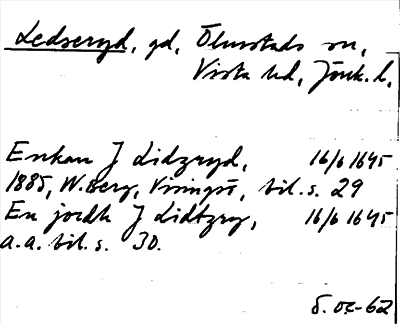 Ledseryd, gd, Ölmstads sn,
Vista hd, Jönk. l.
Enkan J Lidzryd, 16/6 1645
1885, W. Berg, Visingsö, bil. s. 29
En jordh J Lidtzry, 16/6 1645
a.a. bil. s. 30.